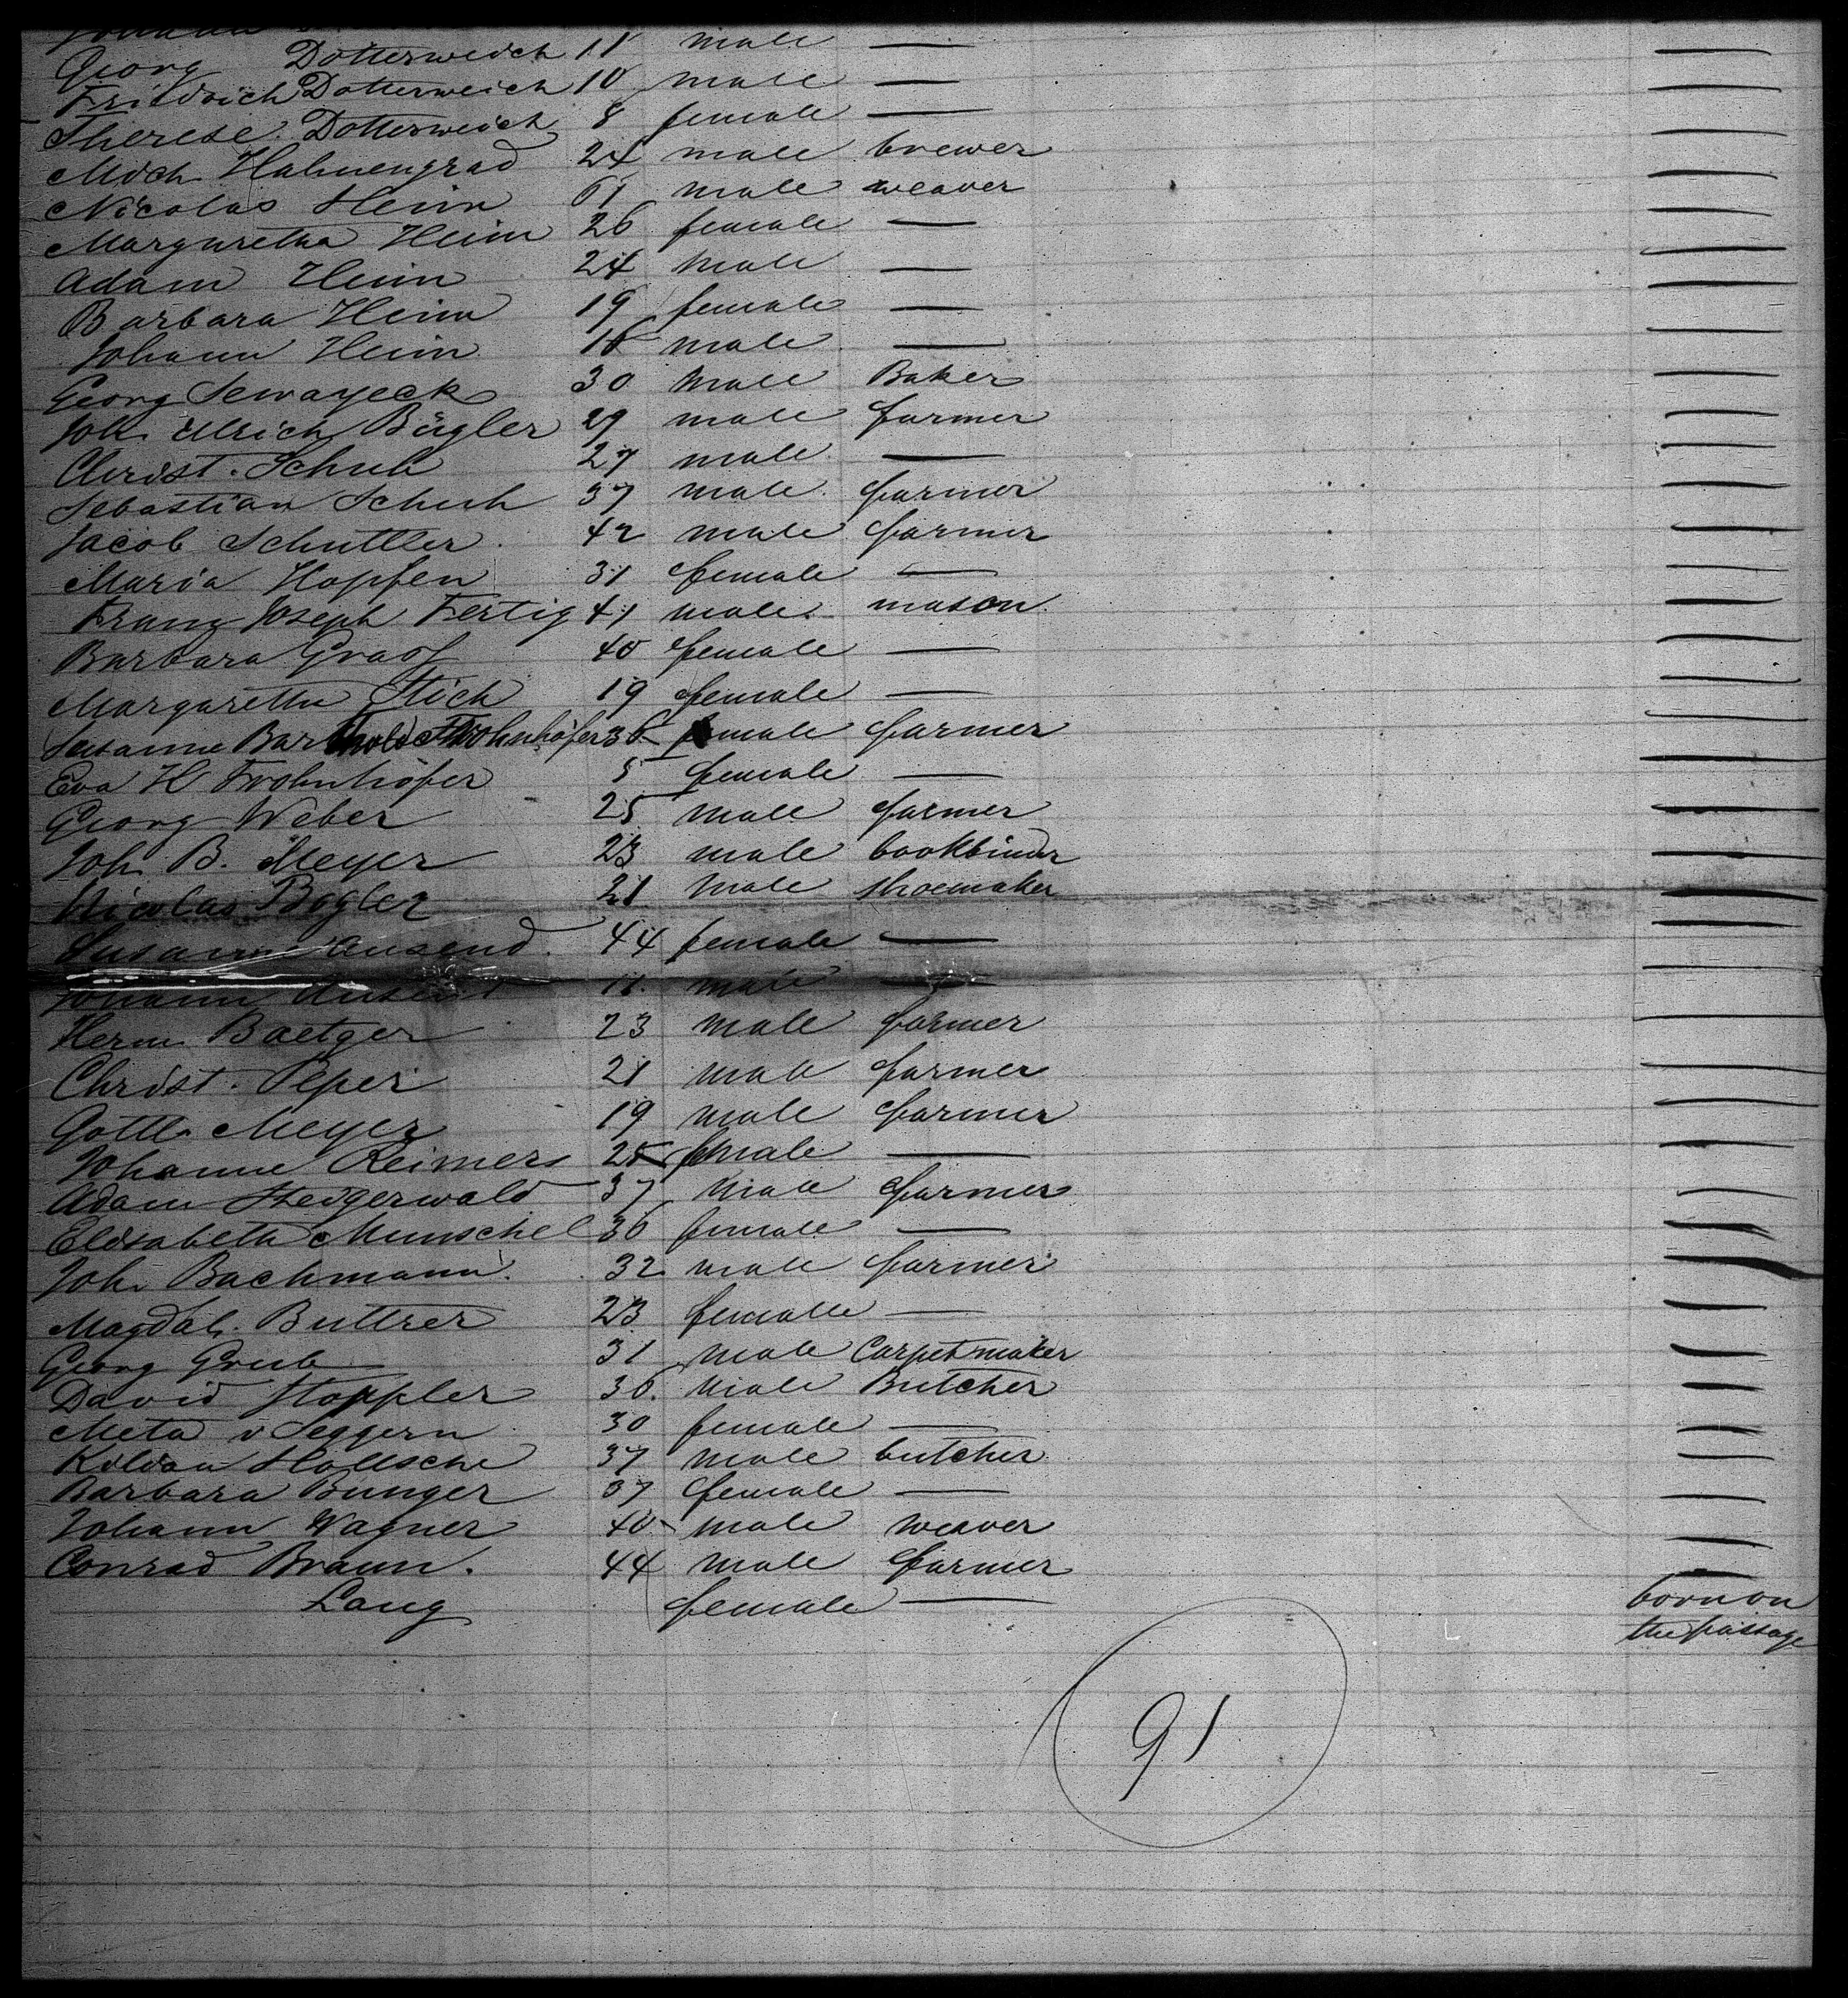 Johann
Georg Dotterweich 11 male —
Friedrich Dotterweich 10 male —
Therese Dotterweich 8 female —
Mich Hahnengrad 24 male brewer
Nicolas Heim 61 male weaver
Margaretha Heim 26 female —
Adam Heim 24 male —
Barbara Heim 19 female —
Johann Heim 16 male —
Georg 30 male Baker
Joh. Ulrich Bügler 29 male farmer
Christ. Schuh 27 male —
Sebastian Schuh 37 male farmer
Jacob Schuttler 42 male farmer
Maria Hopfen 31 female —
Franz Joseph Fertig 41 male mason
Barbara Graof 40 female —
Margaretha Stich 19 female —
Susanne Barthold Frohnhöfer 36 female farmer
Eva H Frohnhöfer 5 female —
Georg Weber 25 male farmer
Joh B. Meyer 23 male bookbinder
Nicolas Bogler 21 male shoemaker
Susanne Ausend 44 female —
Johann Ausend 11 male —
Herm Baetger 23 male farmer
Christ. Peper 21 male farmer
Gottl. Meyer 19 male farmer
Johanne Reimers 25 female —
Adam Steigerwald 37 male farmer
Elisabeth Munschel 36 female —
Joh. Bachmann 32 male farmer
Magdal. Buttrer 23 female —
Georg Grub 31 male Carpetmaker
David Stoppler 36 male Butcher
Meta v Seggern 30 female —
Kilian Hollsche 37 male butcher
Barbara Bunger 37 female —
Johann Wagner 40 male weaver
Conrad Braun. 44 male farmer
Lang female — born on
the passage
91